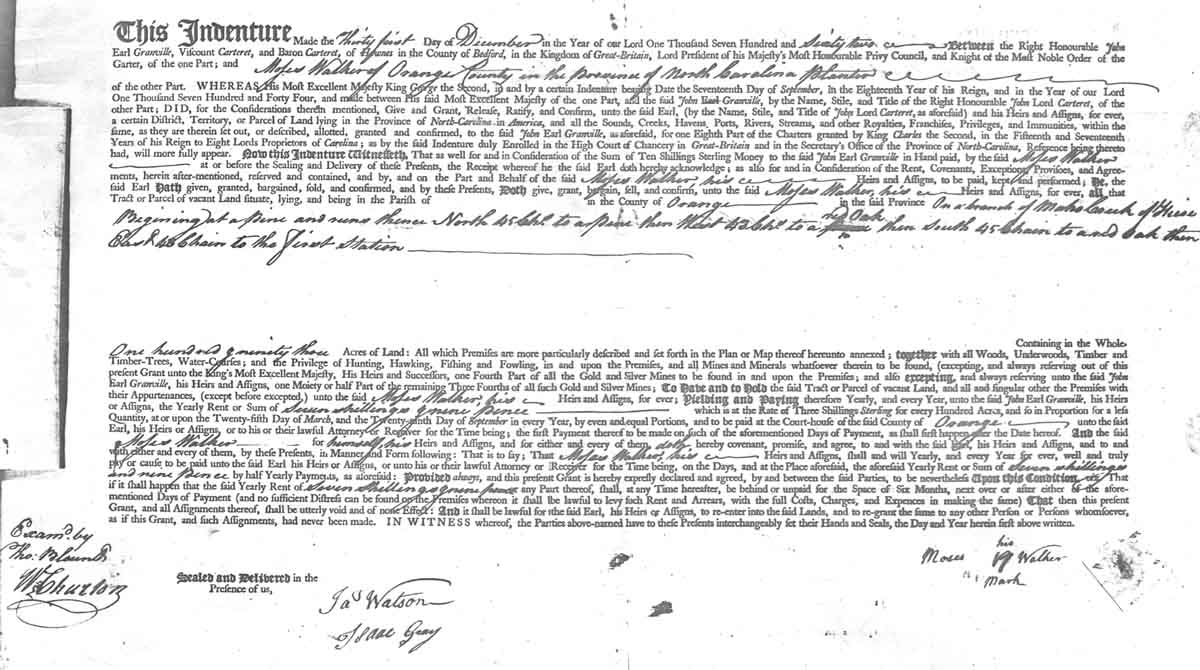 This Indenture Made the Thirty first Day of December in the Year of our Lord One Thousand Seven Hundred and Sixty two Between the Right Honourable John
Earl Granville, Viscount Carteret, and Baron Carteret, of Hawnes in the County of Bedford, in the Kingdom of Great-Britain, Lord President of his Majesty's Most Honourable Privy Council, and Knight of the Most Noble Order of the
Garter, of the one Part; and Moses Walker of Orange County in the Province of North Carolina Planter
of the other Part. WHEREAS His Most Excellent Majesty King George the Second, in and by a certain Indenture bearing Date the Seventeenth Day of September, in the Eighteenth Year of his Reign, and in the Year of our Lord
One Thousand Seven Hundred and Forty Four, and made between His said Most Excellent Majesty of the one Part, and the said John Earl Granville, by the Name, Stile, and Title of the Right Honourable John Lord Carteret, of the
other Part; DID, for the Considerations therein mentioned, Give and Grant, Release, Ratify, and Confirm, unto the said Earl, (by the Name, Stile, and Title of John Lord Carteret, as aforesaid) and his Heirs and Assigns, for ever,
a certain District, Territory, or Parcel of Land lying in the Province of North-Carolina in America, and all the Sounds, Creeks, Havens, Ports, Rivers, Streams, and other Royalties, Franchises, Privileges, and Immunities, within the
same, as they are therein set out, or described, allotted, granted and confirmed, to the said John Earl Granville, as aforesaid, for one Eighth Part of the Charters granted by King Charles the Second, in the Fifteenth and Seventeenth
Years of his Reign to Eight Lords Proprietors of Carolina; as by the said Indenture duly Enrolled in the High Court of Chancery in Great-Britain and in the Secretary's Office of the Province of North-Carolina, Reference being thereto
had, will more fully appear. Now this Indenture Witnesseth, That as well for and in Consideration of the Sum of Ten Shillings Sterling Money to the said John Earl Granville in Hand paid, by the said Moses Walker
at or before the Sealing and Delivery of these Presents, the Receipt whereof he the said Earl doth hereby acknowledge; as also for and in Consideration of the Rent, Covenants, Exceptions, Provisoes, and Agree-
ments, herein after-mentioned, reserved and contained, and by, and on the Part and Behalf of the said Moses Walker his Heirs and Assigns, to be paid, kept, and performed; He, the
said Earl Hath given, granted, bargained, sold, and confirmed, and by these Presents, Doth give, grant, bargain, sell, and confirm, unto the said Moses Walker his Heirs and Assigns, for ever, all that
Tract or Parcel of vacant Land situate, lying, and being in the Parish of in the County of Orange in the said Province On a branch of
Begining at a pine and runs thence North 45 Chs. to a pine then West 43 Chs. to a red Oak then South 45 Chain to a red Oak then
East 43 Chain to the first Station
Containing in the Whole
One hundred & ninety three Acres of Land: All which Premises are more particularly described and set forth in the Plan or Map thereof hereunto annexed; together with all Woods, Underwoods, Timber and
Timber-Trees, Water-Courses; and the Privilege of Hunting, Hawking, Fishing and Fowling, in and upon the Premises, and all Mines and Minerals whatsoever therein to be found, (excepting, and always reserving out of this
present Grant unto the King's Most Excellent Majesty, His Heirs and Successors, one Fourth Part of all the Gold and Silver Mines to be found in and upon the Premises; and also excepting, and always reserving unto the said John
Earl Granville, his Heirs and Assigns, one Moiety or half Part of the remaining Three Fourths of all such Gold and Silver Mines; To Have and to Hold the said Tract or Parcel of vacant Land, and all and singular other the Premises with
their Appurtenances, (except before excepted,) unto the said Moses Walker, his Heirs and Assigns, for ever; Yielding and Paying therefore Yearly, and every Year, unto the said John Earl Granville, his Heirs
or Assigns, the Yearly Rent or Sum of Seven shillings & nine pence which is at the Rate of Three Shillings Sterling for every Hundred Acres, and so in Proportion for a less
Quantity, at or upon the Twenty-fifth Day of March, and the Twenty-ninth Day of September in every Year, by even and equal Portions, and to be paid at the Court-house of the said County of Orange unto the said
Earl, his Heirs or Assigns, or to his or their lawful Attorney or Receiver for the Time being; the first Payment thereof to be made on such of the aforementioned Days of Payment, as shall first happen after the Date hereof. And the said
Moses Walker for himself, his Heirs and Assigns, and for either and every of them, doth hereby covenant, promise, and agree, to and with the said Earl, his Heirs and Assigns, and to and
with either and every of them, by these Presents, in Manner and Form following: That is to say; That Moses Walker, his Heirs and Assigns, shall and will Yearly, and every Year for ever, well and truly
pay or cause to be paid unto the said Earl his Heirs or Assigns, or unto his or their lawful Attorney or Receiver for the Time being, on the Days, and at the Place aforesaid, the aforesaid Yearly Rent or Sum of Seven shillings
and nine pence by half Yearly Payments, as aforesaid: Provided always, and this present Grant is hereby expresly declared and agreed, by and between the said Parties, to be nevertheless Upon this Condition, That
if it shall happen that the said Yearly Rent of Seven shillings & nine pence any Part thereof, shall, at any Time hereafter, be behind or unpaid for the Space of Six Months, next over or after either of the afore-
mentioned Days of Payment (and no sufficient Distress can be found on the Premises whereon it shall be lawful to levy such Rent and Arrears, with the full Costs, Charges, and Expences in making the same) That then this present
Grant, and all Assignments thereof, shall be utterly void and of none Effect: And it shall be lawful for the said Earl, his Heirs or Assigns, to re-enter into the said Lands, and to re-grant the same to any other Person or Persons whomsoever,
as if this Grant, and such Assignments, had never been made. IN WITNESS whereof, the Parties above-named have to these Presents interchangeably set their Hands and Seals, the Day and Year herein first above written.
Examd. by
Tho. Blount
Wm Churton
Sealed and Delivered in the
Presence of us,
Jas Watson
Isaac Gray
his
Moses Walker
Mark